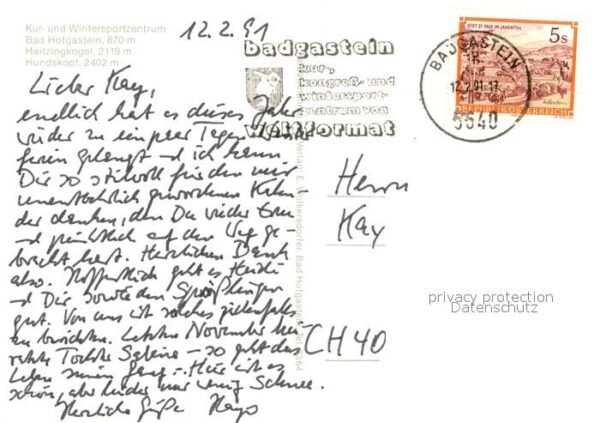 Kur- und Wintersportzentrum
Bad Hofgastein, 870 m
Haitzingkogel, 2119 m
Hundskopf, 2402 m
12.2.91
Lieber Kay,
endlich hat es dieses Jahr
wieder zu ein paar Tagen
Ferien gelangt und ich kann
Dir so stilvoll für den mir
unentbehrlich gewordenen Kalen-
der danken, den Du wieder treu
und pünktlich auf den Weg ge-
bracht hast. Herzlichen Dank
also. Hoffentlich geht es Heidi
und Dir sowie den Sprößlingen
gut. Von uns ist solches jedenfalls
zu berichten. Letzten November hei-
ratete Tochter Sabine - so geht das
Leben seinen Gang. - Hier ist es
schön, aber leider nur wenig Schnee.
Herzliche Grüße
badgastein
kur-,
kongreß- und
wintersport-
zentrum von
weltformat
STIFT ST. PAUL IM LAVANTTAL
5s
REPUBLIK ÖSTERREICH
BADGASTEIN
5640
Verlag: E. Wolkersdorfer, Bad Hofgastein
Herrn
Kay
CH 40
privacy protection
Datenschutz